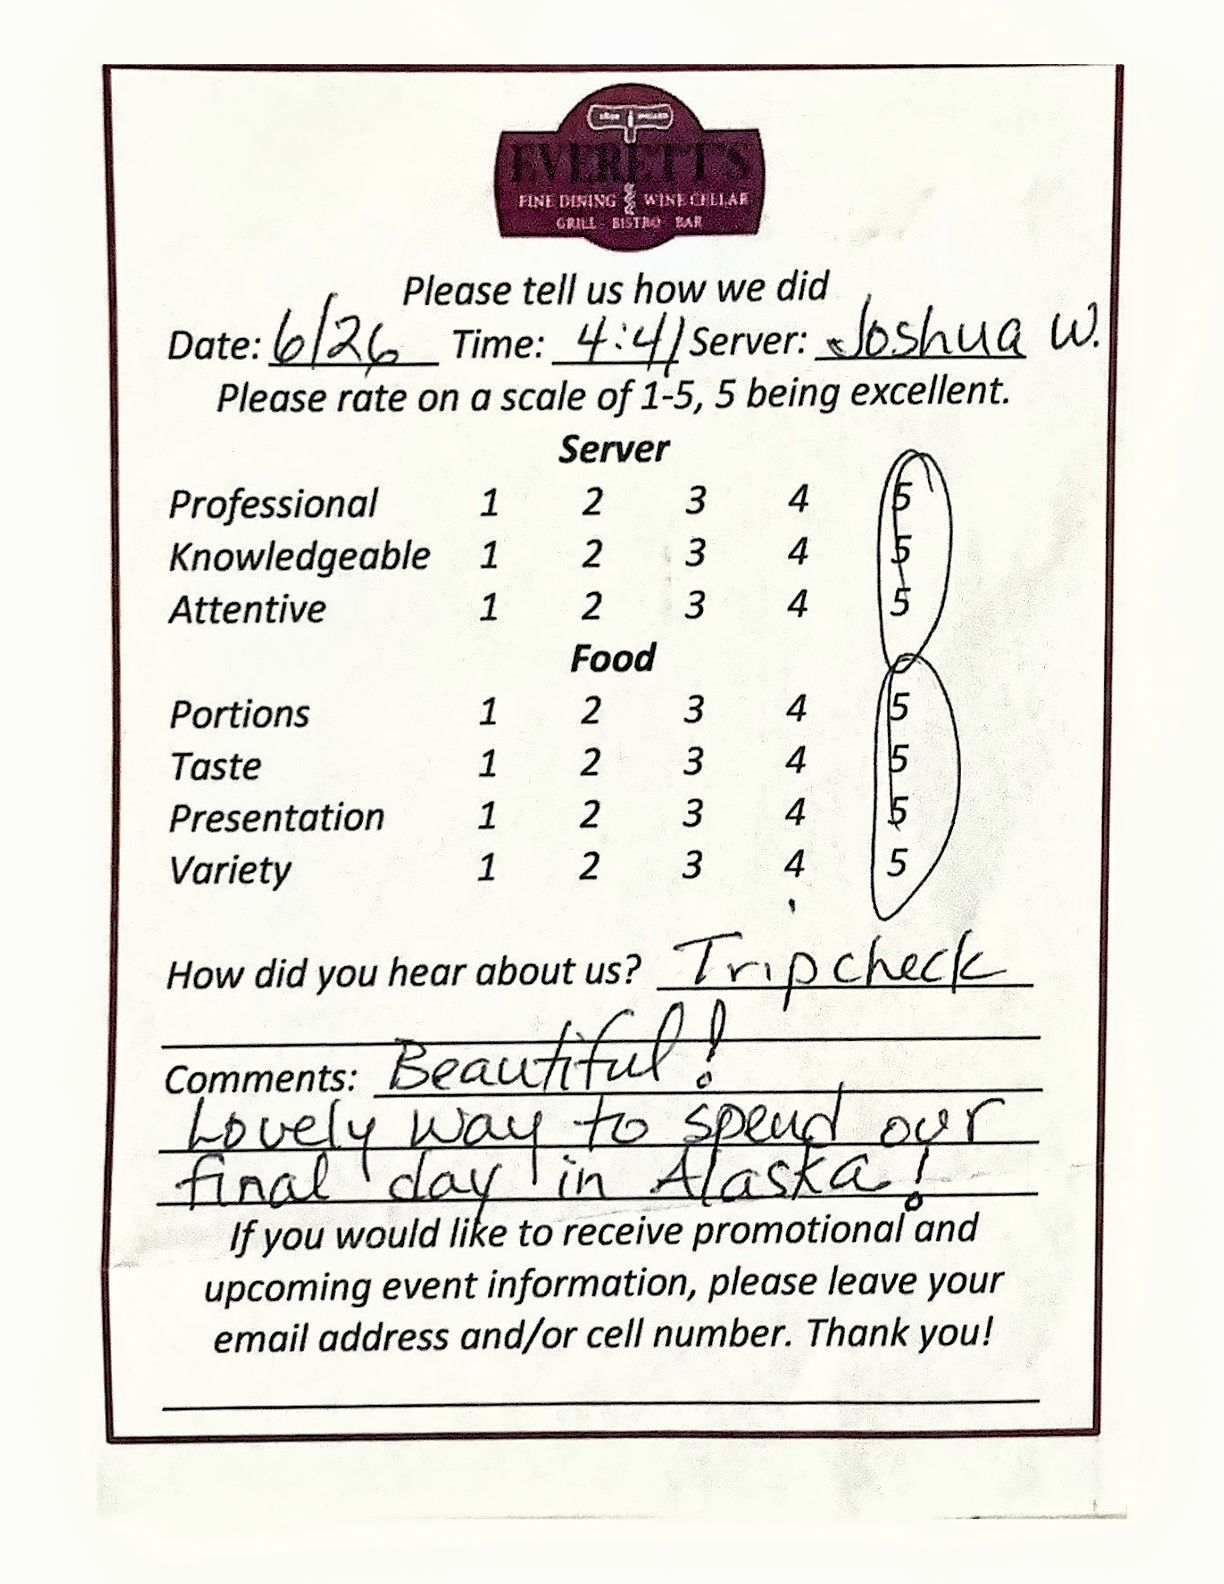 EVERETT'S
FINE DINING WINE CELLAR
GRILL - BISTRO BAR
Please tell us how we did
Date: 6/26 Time: 4:41 Server: Joshua W.
Please rate on a scale of 1-5, 5 being excellent.
Server
Professional 1 2 3 4 5
Knowledgeable 1 2 3 4 5
Attentive 1 2 3 4 5
Food
Portions 1 2 3 4 5
Taste 1 2 3 4 5
Presentation 1 2 3 4 5
Variety 1 2 3 4 5
How did you hear about us? Tripcheck
Comments: Beautiful!
Lovely way to spend our
final day in Alaska!
If you would like to receive promotional and
upcoming event information, please leave your
email address and/or cell number. Thank you!